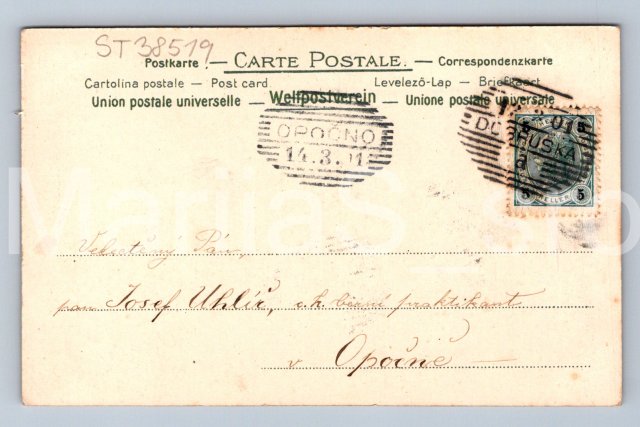 ST38519
Postkarte — CARTE POSTALE. — Correspondenzkarte
Cartolina postale — Post card Levelező-Lap — Briefkaart
Union postale universelle — Weltpostverein — Unione postale universale
OPOČNO
14.3.01
DOBRUSKA
5 5
5
Velectěný Pán,
pan Josef Uhlíř, c.k. berní praktikant
v Opočně